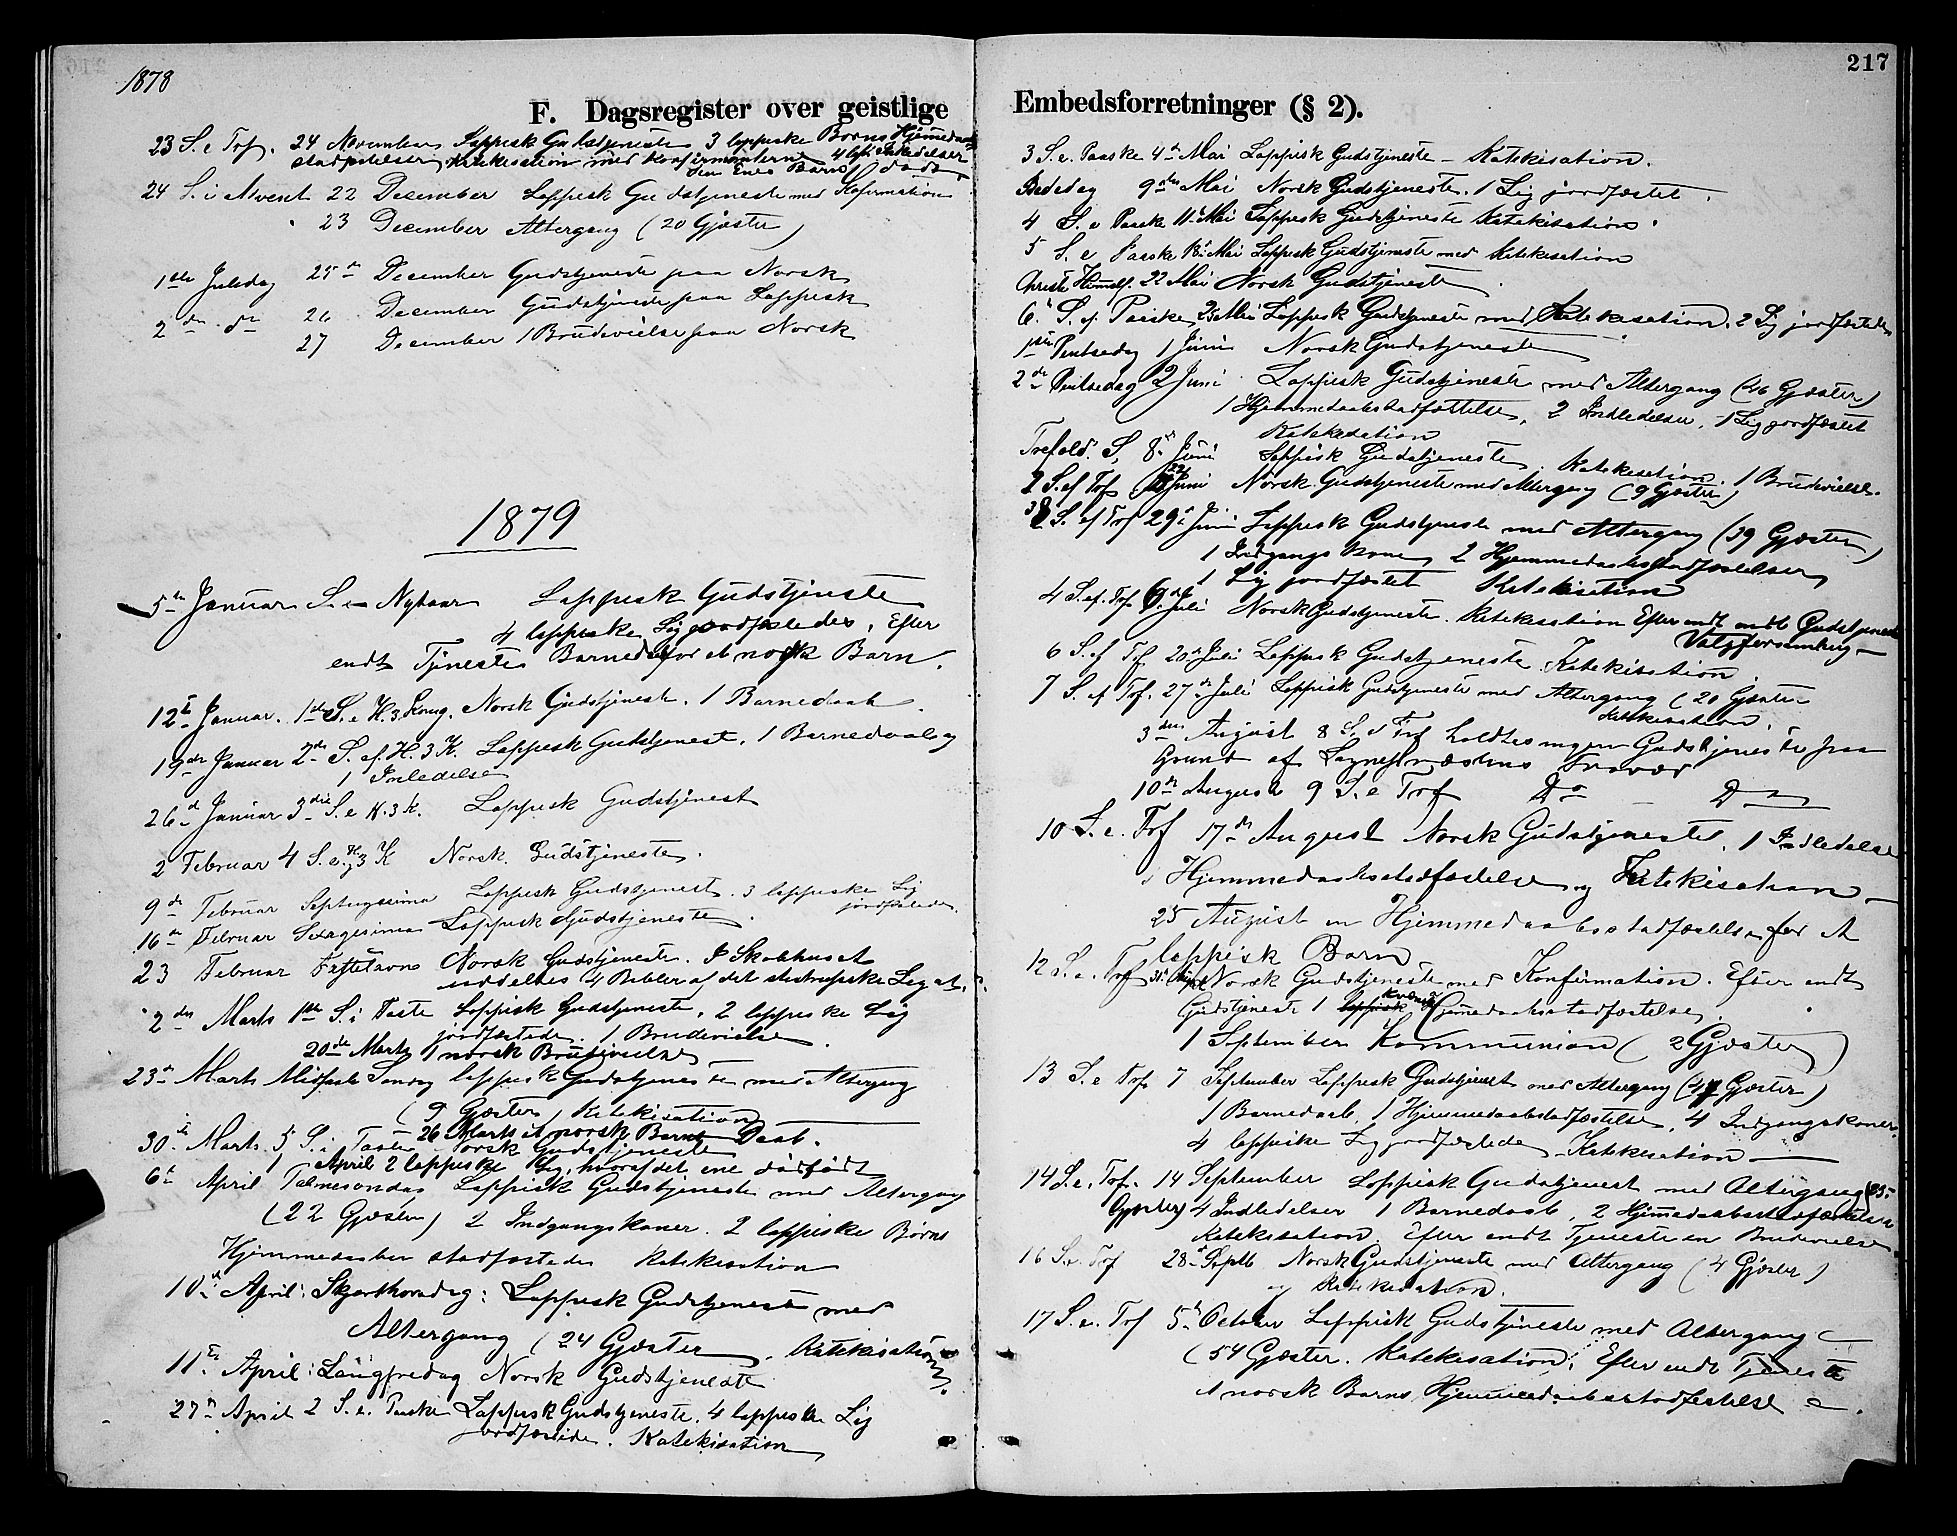 1878
F. Dagsregister over geistlige
23 S. e Tref. 24 November Lappisk Gudstjeneste 3 lappiske Børns Hjemmedaabs
stadfæstelser, Katekisation med Konfirmanterne 4 Indledelser
Barn
24 S. i Advent 22 December Lappisk Gudstjeneste med Konfirmation
23 December Altergang (20 Gjæster)
1ste Juledag 25de December Gudstjeneste paa Norsk
2den do 26 December Gudstjeneste paa Lappisk
27 December 1 Brudevielse paa Norsk
1879
5te Januar S. e Nytaar Lappisk Gudstjeneste
4 lappiske Lig jordfæstedes. Efter
endt Tjeneste Barnedaab for et norsk Barn.
12te Januar. 1ste S. e H. 3 Kong. Norsk Gudstjeneste. 1 Barnedaab.
19de Januar 2den S. ef. H. 3 K. Lappisk Gudstjenest. 1 Barnedaab og
1 Indledelse
26de Januar 3die S. e H. 3 K. Lappisk Gudstjenest
2 Februar 4 S. e. H. 3 K Norsk Gudstjeneste.
9de Februar Septuagesima Lappisk Gudstjenest. 3 lappiske Lig
jordfæstede.
16de Februar Sexagesima Lappisk Gudstjeneste.
23 Februar Fastelavns Norsk Gudstjeneste. I Skolehuset
uddeltes 4 Bibler af det Legat.
2den Marts 1ste S. i Faste Lappisk Gudstjeneste. 2 lappiske Lig
jordfæstede. 1 Brudevielse.
20de Marts 1 norsk Brudevielse
23de Marts Midfaste Søndag lappisk Gudstjeneste med Altergang
(9 Gjæster) Katekisation
26 Marts et norsk Barns Daab.
30te Marts. 5 S. i Faste Norsk Gudstjeneste
1 April 2 lappiske Lig, hvoraf det ene dødfødt
6te April Palmesøndag Lappisk Gudstjeneste med Altergang
(22 Gjæster) 2 Indgangskoner. 2 lappiske Børns
Hjemmedaaber stadfæstedes Katekisation
10de April: Skjærthorsdag: Lappisk Gudstjeneste med
Altergang (24 Gjæster). Katekisation
11te April: Langfredag Norsk Gudstjeneste
27de April 2 S. e. Paaske Lappisk Gudstjeneste. 4 lappiske Lig
jordfæstede. Katekisation
217
Embedsforretninger (§ 2).
3 S. e. Paaske 4de Mai Lappisk Gudstjeneste – Katekisation.
Bededag 9de Mai Norsk Gudstjeneste. 1 Lig jordfæstet.
4 S. e Paaske 11te Mai Lappisk Gudstjeneste Katekisation.
5 S. e Paaske 18de Mai Lappisk Gudstjeneste med Katekisation
Christi Himmelf. 22 Mai Norsk Gudstjeneste.
6te S. ef Paaske 25 Mai Lappisk Gudstjeneste med Katekisation. 2 Lig jordfæstede
1ste Pintsedag 1 Juni Norsk Gudstjeneste
2de Pintsedag 2 Juni Lappisk Gudstjeneste med Altergang (46 Gjæster)
1 Hjemmedaabsstadfæstelse, 2 Indledelser, 1 Lig jordfæstet
Katekisation
Trefold. S. 8de Juni Lappisk Gudstjeneste. Katekisation. 1 Brudevielse.
2 S. ef Tref 22 Juni Norsk Gudstjeneste med Altergang (9 Gjæster)
3 S. ef Tref 29de Juni Lappisk Gudstjeneste med Altergang (39 Gjæster)
1 Indgangskone, 2 Hjemmedaabsstadfæstelser,
1 Lig jordfæstet Katekisation
4 S. ef. Tref. 6te Juli Norsk Gudstjeneste. Katekisation Efter endt Gudstjeneste
Valgforsamling
6 S. ef Tref 20de Juli Lappisk Gudstjeneste Katekisation
7 S. ef Tref. 27de Juli Lappisk Gudstjeneste med Altergang (20 Gjæster
Katekisation.
3die August 8 S. e Tref holdtes ingen Gudstjeneste paa
Grund af Sognepræstens Fravær
10de August 9 S. e Tref Do – Do
10 S. e. Tref 17de August Norsk Gudstjeneste. 1 Indledelse
1 Hjemmedaabsstadfæstelse og Katekisation
25 August en Hjemmedaabsstadfæstelse for et
lappisk Barn
12 S. e. Tref 31 Aug. Norsk Gudstjeneste med Konfirmation. Efter endt
Gudstjeneste 1 lappisk kvænsk Hjemmedaabsstadfæstelse.
1 September Kommunion (2 Gjæster)
13 S. e Tref 7 September Lappisk Gudstjenest med Altergang (47 Gjæster)
1 Barnedaab, 1 Hjemmedaabsstadfæstelse, 4 Indgangskoner,
4 lappiske Lig jordfæstede, Katekisation
14 S. e. Tref. 14 September Lappisk Gudstjenest med Altergang (23
Gjæster) 4 Indledelser 1 Barnedaab, 2 Hjemmedaabsstadfæstelser
Katekisation. Efter endt Tjeneste en Brudevielse
16 S. e. Tref 28de Septb. Norsk Gudstjeneste med Altergang (4 Gjæster)
og Katekisation.
17 S. e. Tref 5te October Lappisk Gudstjeneste med Altergang
(54 Gjæster. Katekisation. Efter endt Tjeneste
et norsk Barns Hjemmedaabsstadfæstelse.